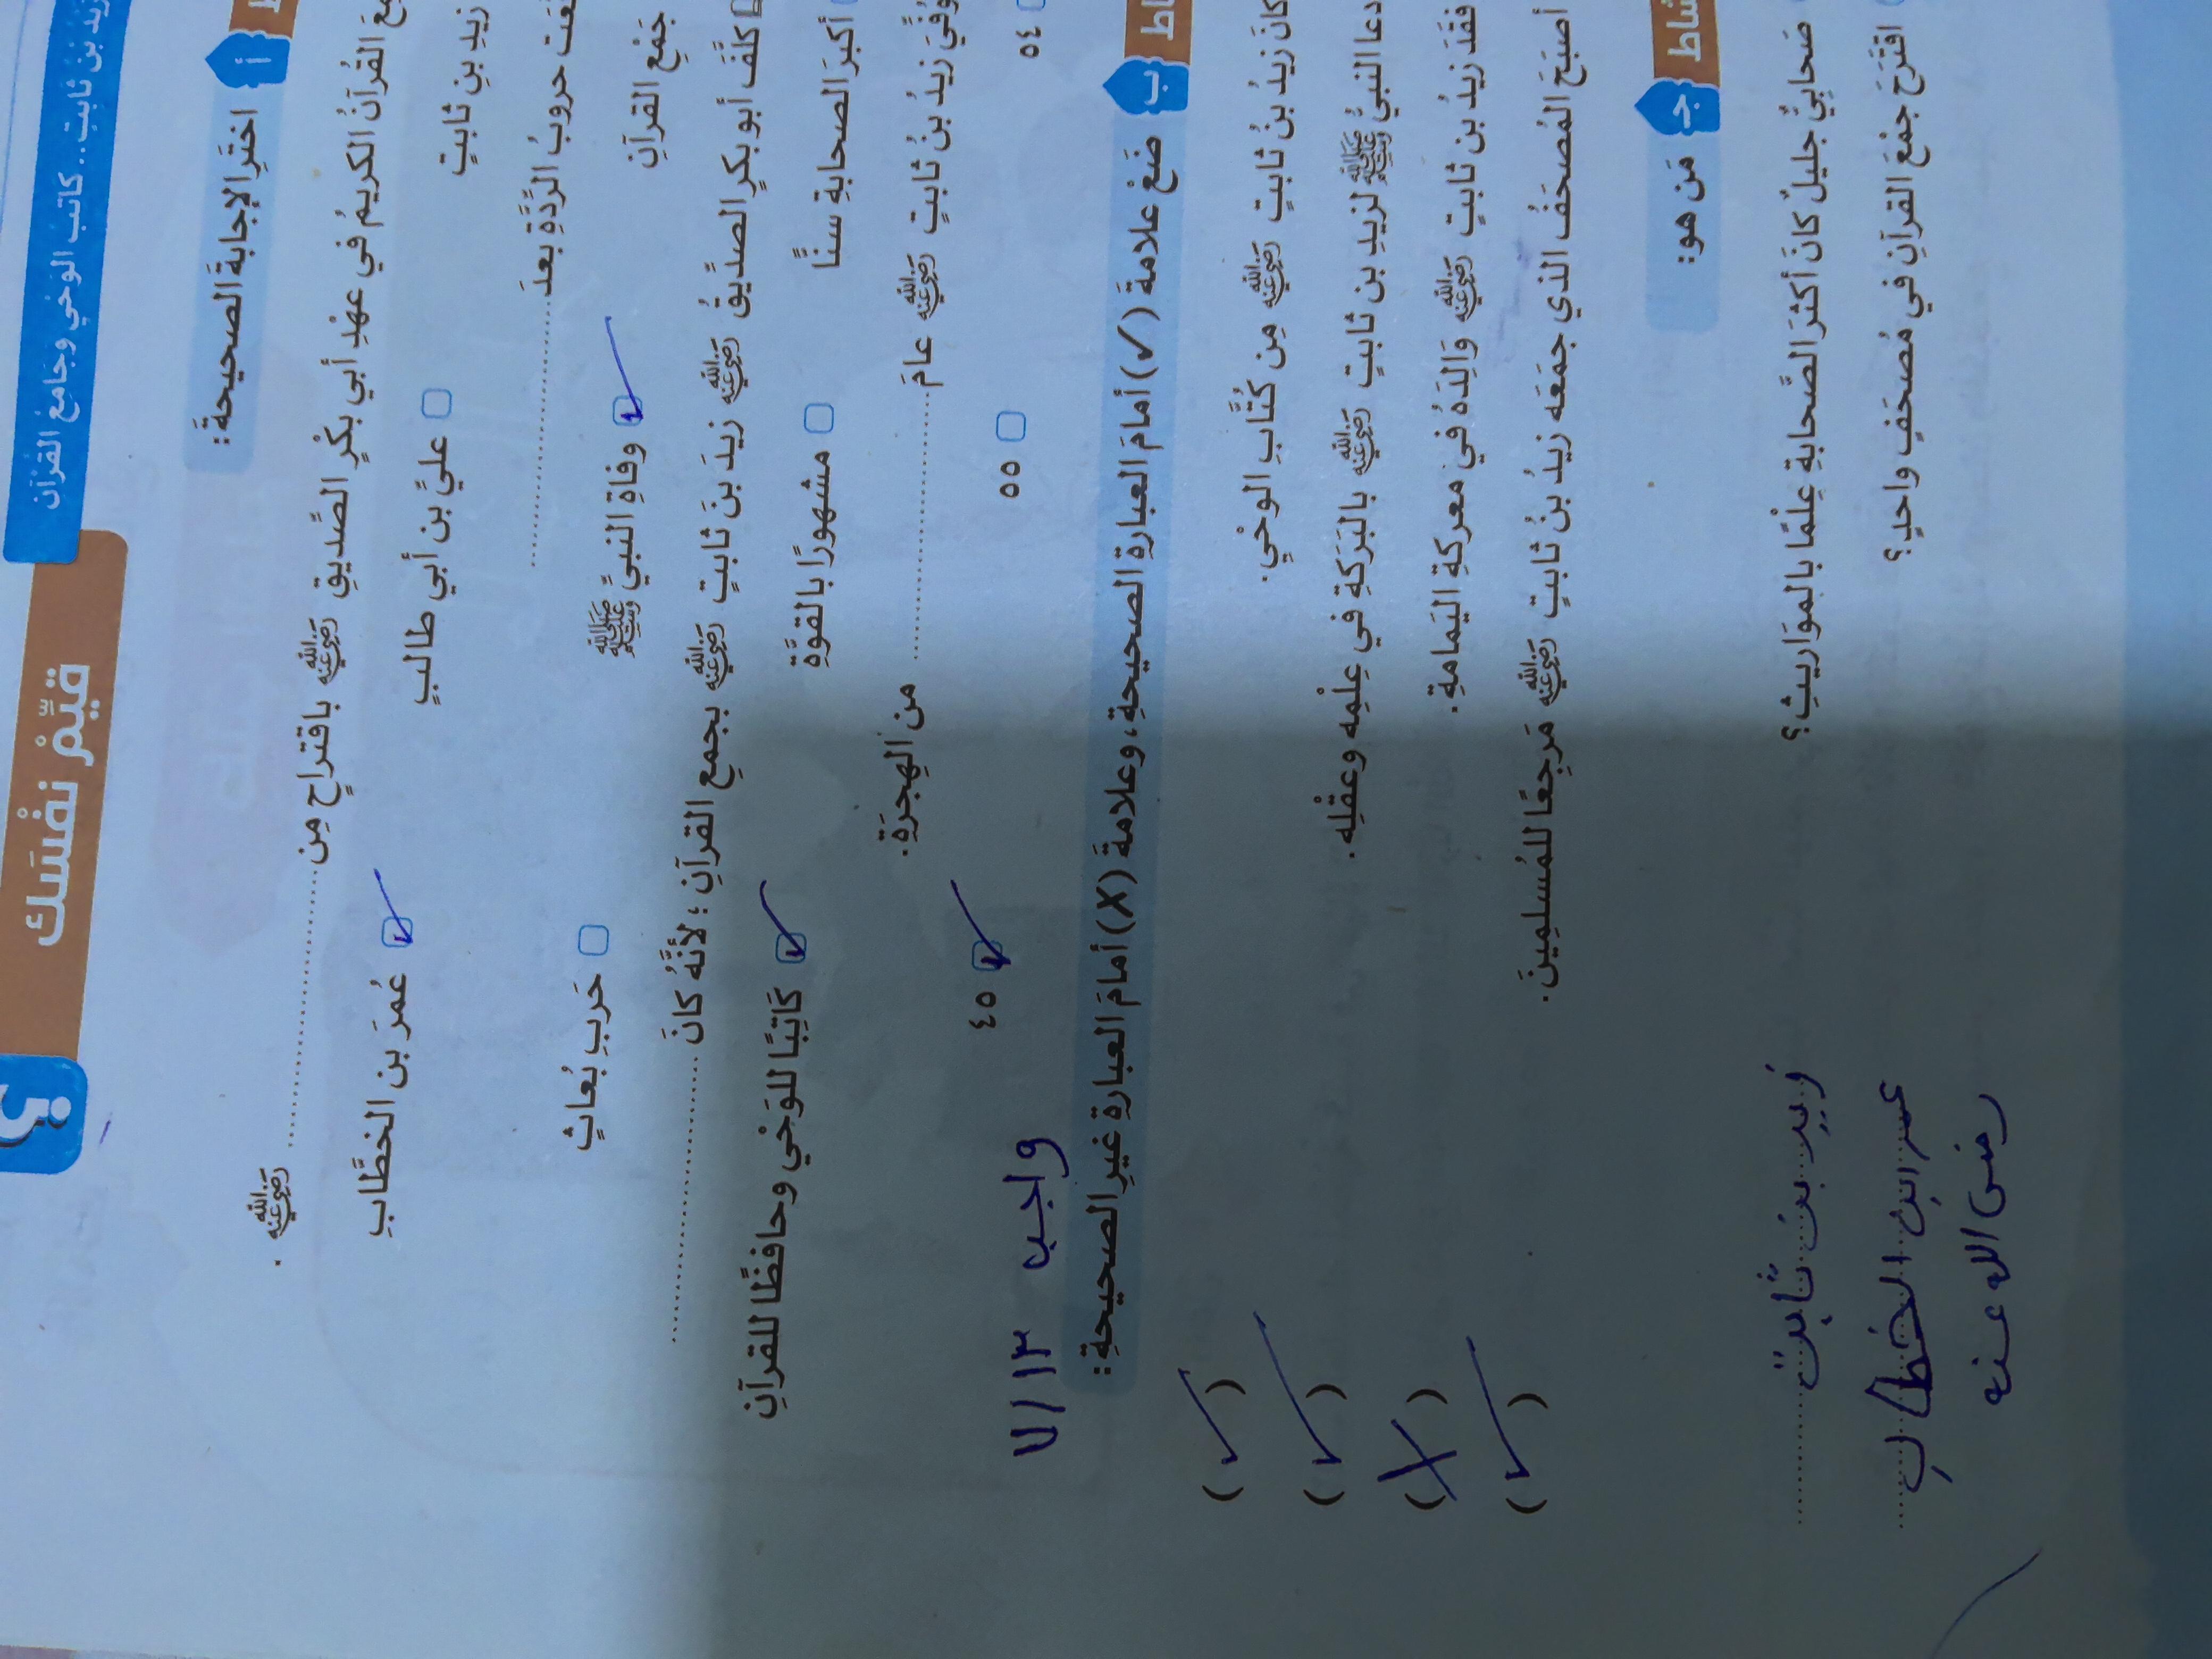 زيد بن ثابت.. كاتب الوحي وجامع القرآن
قيِّمْ نفْسَك
أ
اختَرِ الإجابةَ الصحيحةَ:
القُرآنُ الكريمُ في عهْدِ أبي بكْرٍ الصِّديقِ رَضِيَ اللهُ عَنْهُ باقتراحٍ مِن .............................. رَضِيَ اللهُ عَنْهُ .
زيدِ بنِ ثابتٍ
□ عليِّ بن أبي طالبٍ
☑ عُمرَ بن الخطَّابِ
حروبُ الرِّدَّةِ بعدَ ..............................
جَمْعِ القرآنِ
☑ وفاةِ النبيِّ ﷺ
□ حَربِ بُعاثٍ
كلَّفَ أبو بكرٍ الصدِّيقُ رَضِيَ اللهُ عَنْهُ زيدَ بنَ ثابتٍ رَضِيَ اللهُ عَنْهُ بجمعِ القرآنِ؛ لأنَّهُ كانَ ..............................
أكبرَ الصحابةِ سنًّا
□ مشهورًا بالقوَّةِ
☑ كَاتِبًا للوَحْيِ وحافظًا للقرآنِ
زيدُ بنُ ثابتٍ رَضِيَ اللهُ عَنْهُ عامَ .............................. من الهِجرَةِ.
٥٤
□ ٥٥
☑ ٤٥
واجب ٧/١٣
ب
ضَعْ علامةَ (✓) أمامَ العبارةِ الصحيحةِ، وعلامةَ (X) أمامَ العبارةِ غيرِ الصحيحةِ:
كانَ زيدُ بنُ ثابتٍ رَضِيَ اللهُ عَنْهُ مِن كُتَّابِ الوحْيِ. (✓)
دعا النبيُّ ﷺ لزيدِ بن ثابتٍ رَضِيَ اللهُ عَنْهُ بالبَرَكةِ في عِلْمِه وعقْلِه. (✓)
فقَدَ زيدُ بن ثابتٍ رَضِيَ اللهُ عَنْهُ وَالِدَهُ في معركةِ اليَمامةِ. (X)
أصبَحَ المُصحَفُ الذي جمَعَه زيدُ بنُ ثابتٍ رَضِيَ اللهُ عَنْهُ مَرجِعًا للمُسلِمينَ. (✓)
نشاط جـ
مَن هو:
صَحابيٌّ جليلٌ كانَ أكثرَ الصَّحابةِ عِلْمًا بالموَاريثِ؟ زيد بن ثابت
اقتَرحَ جمْعَ القرآنِ في مُصحَفٍ واحدٍ؟ عمر ابن الخطاب
رضى الله عنه